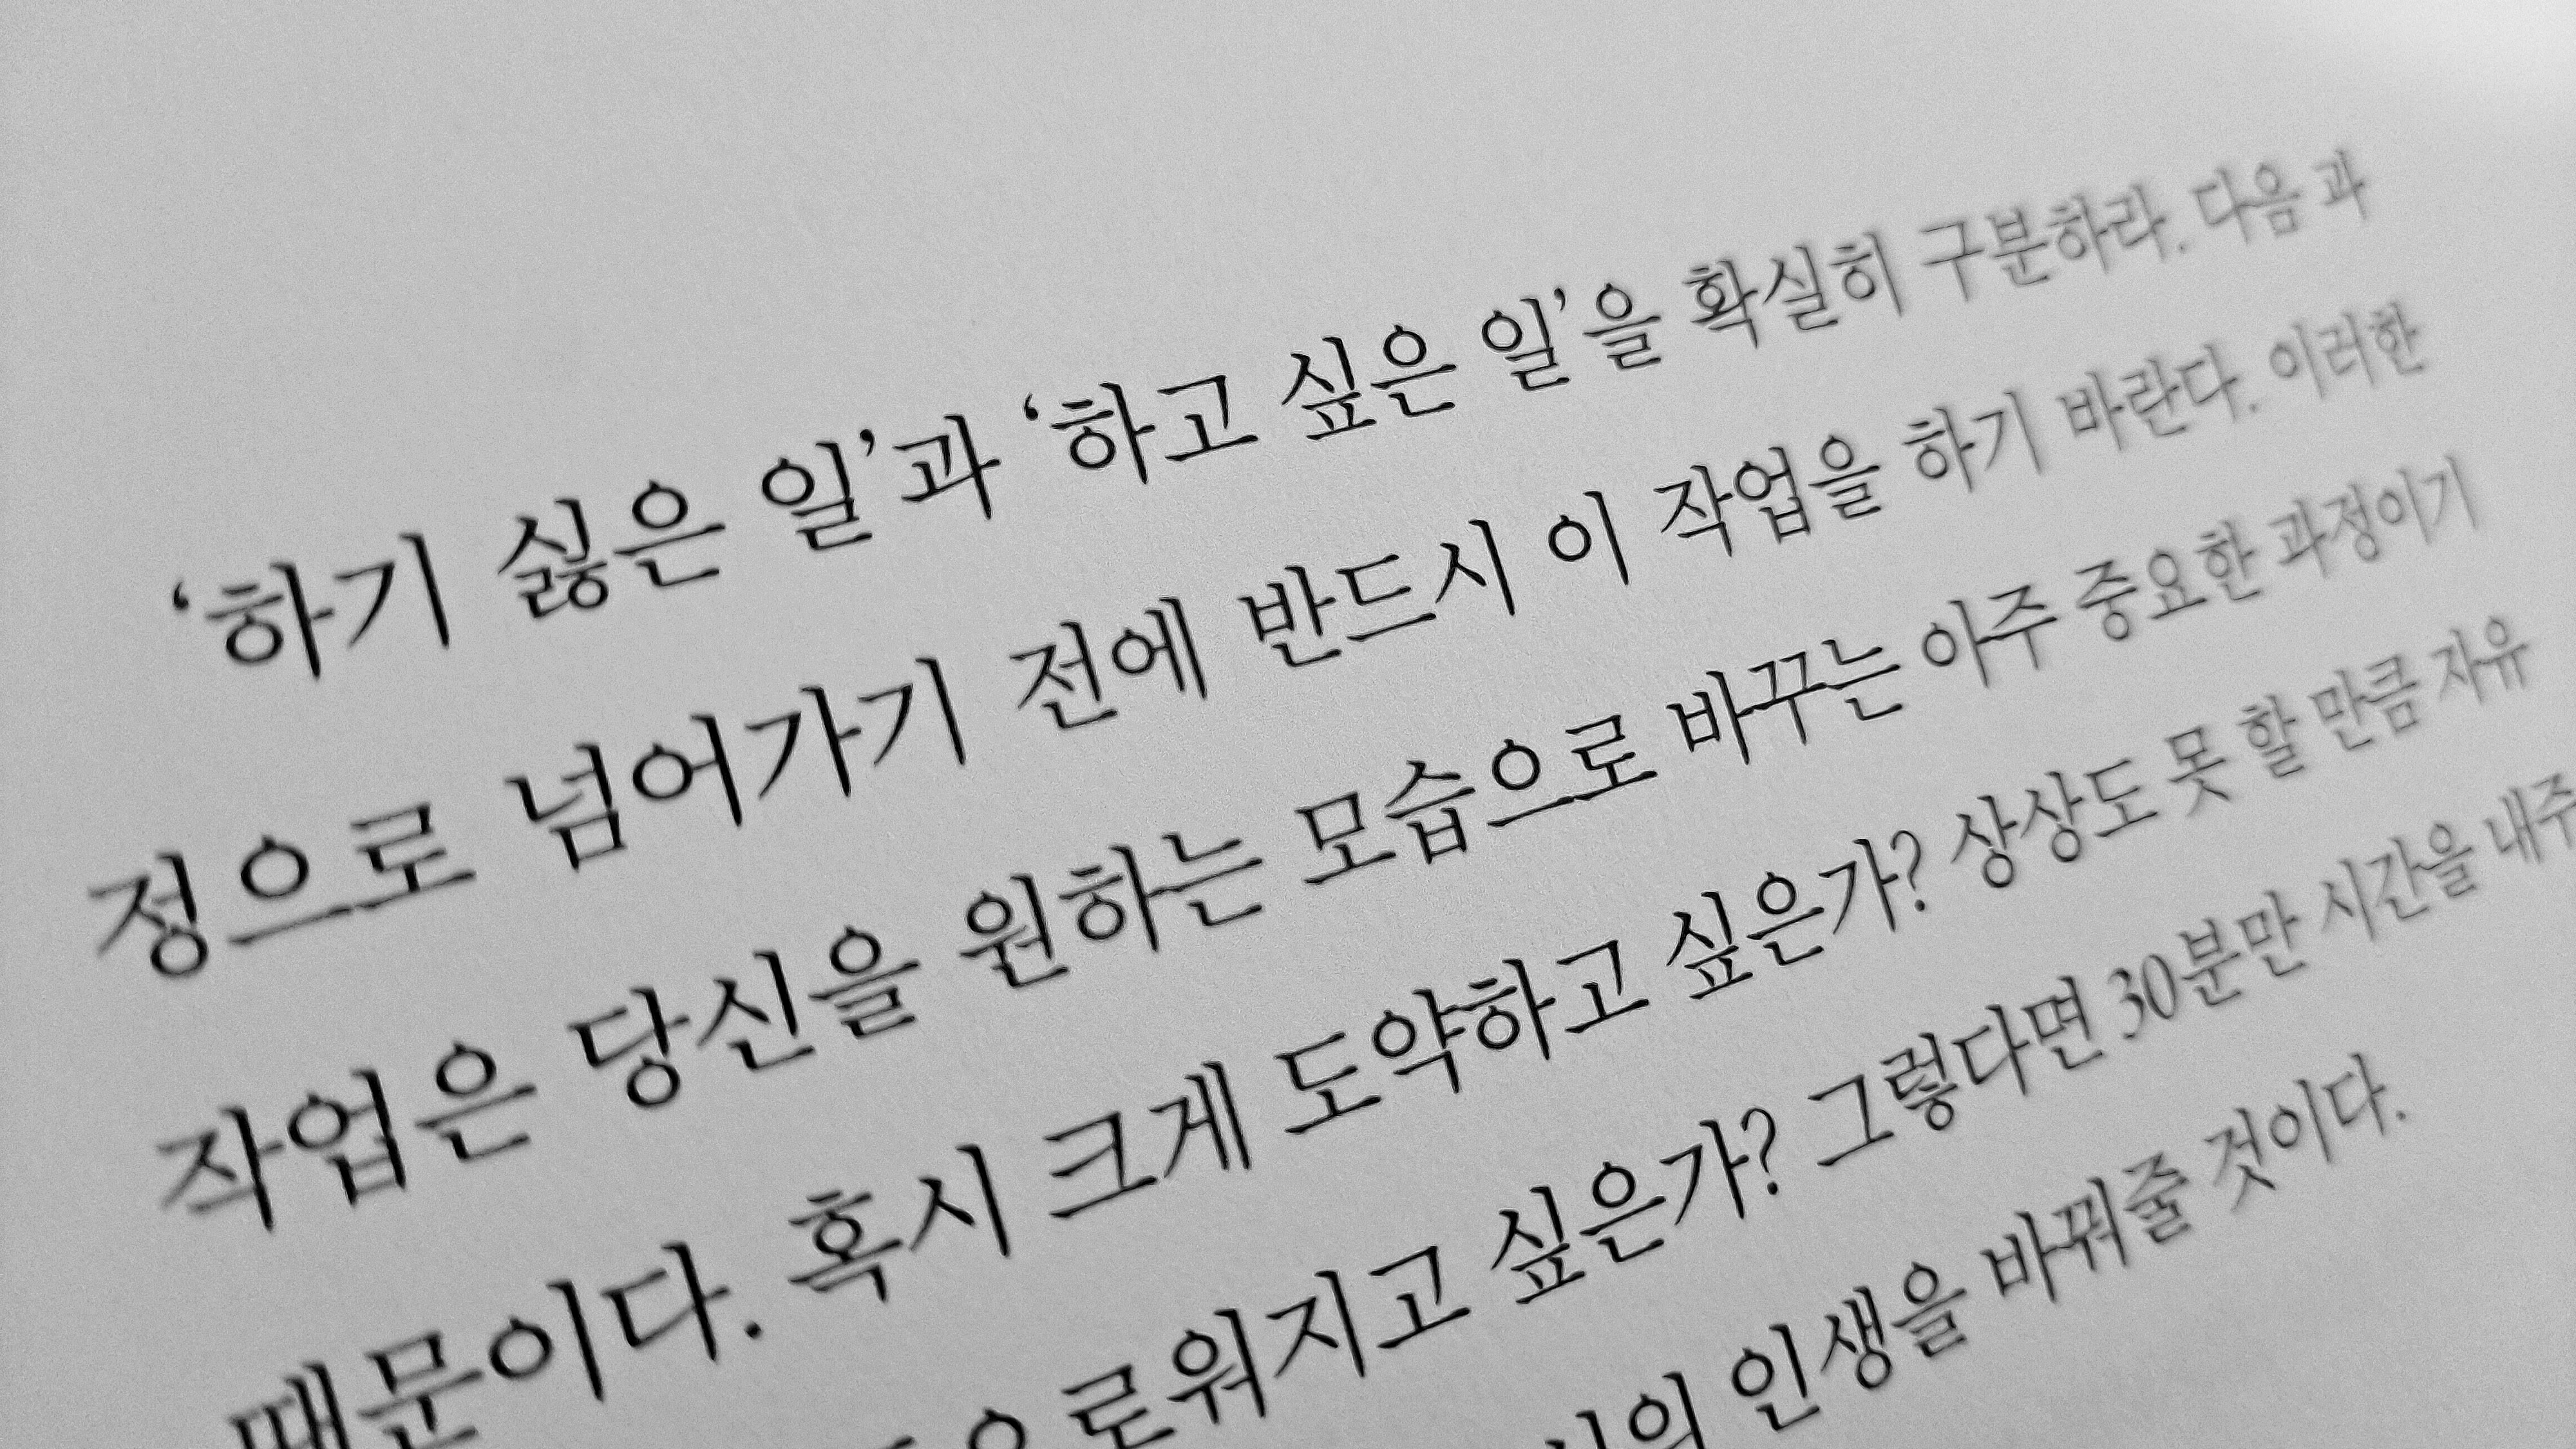 ‘하기 싫은 일’과 ‘하고 싶은 일’을 확실히 구분하라. 다음 과
정으로 넘어가기 전에 반드시 이 작업을 하기 바란다. 이러한
작업은 당신을 원하는 모습으로 바꾸는 아주 중요한 과정이기
때문이다. 혹시 크게 도약하고 싶은가? 상상도 못 할 만큼 자유
로워지고 싶은가? 그렇다면 30분만 시간을 내주
인생을 바꿔줄 것이다.